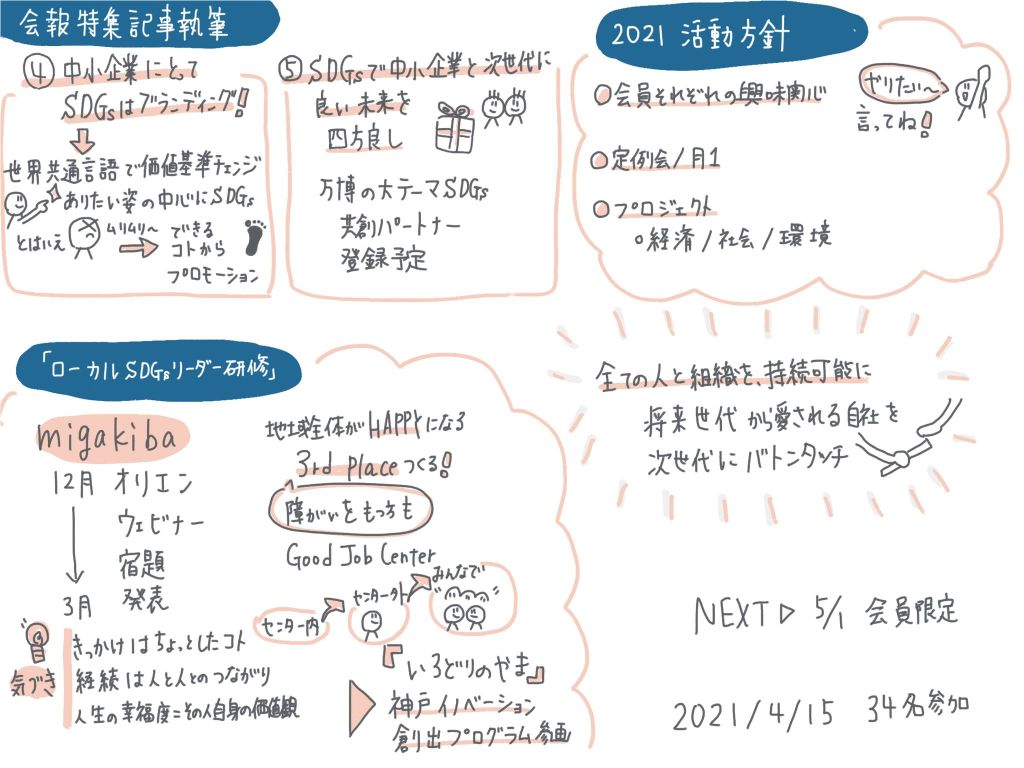 会報特集記事執筆
④中小企業にとって
SDGsはブランディング!
世界共通言語で価値基準チェンジ
ありたい姿の中心にSDGs
とはいえ
ムリムリ〜
できる
コトから
プロモーション
⑤SDGsで中小企業と次世代に
良い未来を
四方良し
万博の大テーマSDGs
共創パートナー
登録予定
2021 活動方針
会員それぞれの興味関心
やりたい〜
言ってね!
定例会/月1
プロジェクト
経済/社会/環境
「ローカルSDGsリーダー研修」
migakiba
12月 オリエン
ウェビナー
宿題
3月 発表
気づき
きっかけはちょっとしたコト
経続は人と人とのつながり
人生の幸福度=その人自身の価値観
地域全体がHAPPYになる
3rd placeつくる!
障がいをもつ方も
Good Job Center
センター内
センター外
みんなで
『いろどりのやま』
神戸イノベーション
創出プログラム参画
全ての人と組織を、持続可能に
将来世代から愛される自社を
次世代にバトンタッチ
NEXT▷ 5/1 会員限定
2021/4/15 34名参加